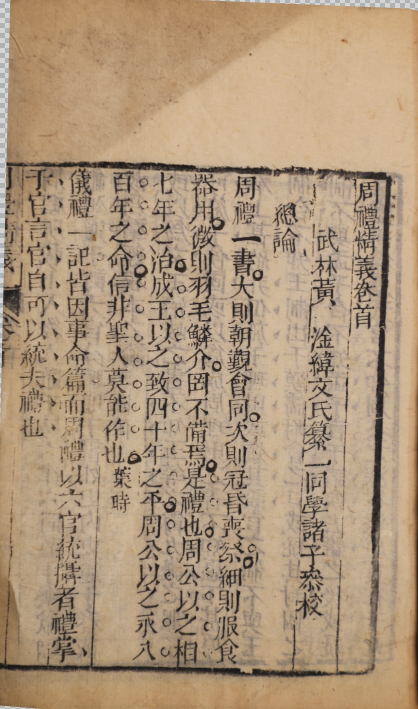 周禮精義卷首
武林黃淦緯文氏纂 同學諸子叅校
總論
周禮一書大則朝覲會同次則冠昏喪祭細則服食
器用微則羽毛鱗介罔不備焉是禮也周公以之相
七年之治成王以之致四十年之平周公以之永八
百年之命信非聖人莫能作也葉時
儀禮一記皆因事命篇而周禮以六官統攝者禮掌
于官言官自可以統夫禮也